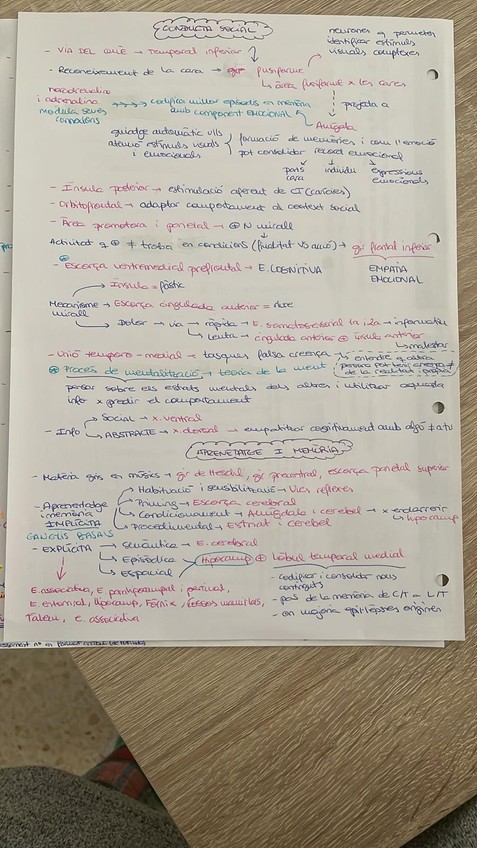 CONDUCTA SOCIAL
neurones q permeten
identificar estímuls
visuals complexes
- VIA DEL QUÈ → Temporal inferior
- Reconeixement de la cara → gir fusiforme
↳ àrea fusiforme x les cares
noradrenalina
i adrenalina
modula seves
connexions
codifica millor episodis en memòria
amb component EMOCIONAL
projecta a
Amígdala
guiatge automàtic ulls
atenció estímuls visuals
i emocionals
formació de memòries i com l'emoció
pot consolidar record emocional
parts cara
individu
expressions
emocionals
- Ínsula posterior → estimulació aferent de CT (carícies)
- Orbitofrontal → adaptar comportament al context social
- Àrea premotora i parietal → N mirall
Activitat q ≠ troba en condicions (finalitat vs acció) → gir frontal inferior
- Escorça ventromedial prefrontal → E. COGNITIVA
EMPATIA
EMOCIONAL
Ínsula = fàstic
Mecanisme → Escorça cingulada anterior = riure
mirall
Dolor → via → ràpida → E. somatosensorial 1a i 2a → informatiu
↳ lenta → cingulada anterior i ínsula anterior
↳ malestar
- Unió temporo-medial → tasques falsa creença
↳ entendre q altra
persona pot tenir creença ≠
de la realitat i pròpia
Procés de mentalització → teoria de la ment
pensar sobre els estats mentals dels altres i utilitzar aquesta
info x predir el comportament
- Info
Social → x. ventral
ABSTRACTE → x. dorsal → empatitzar cognitivament amb algú ≠ a tu
APRENETATGE I MEMÒRIA
- Matèria gris en músics → gir de Heschl, gir precentral, escorça parietal superior
- Aprenentatge
i memòria
IMPLÍCITA
Habituació i sensibilització → Vies reflexes
Priming → Escorça cerebral
Condicionament → Amígdala i cerebel → x endarrerir
↳ hipocamp
Procedimental → Estriat i cerebel
GANGLIS BASALS
- EXPLÍCITA
Semàntica → E. cerebral
Episòdica
Espacial
Hipocamp + Lòbul temporal medial
- codificar i consolidar nous
continguts
- pas de la memòria de C/T a L/T
- on majoria epilèpsies originen
E. associativa, E. parahipocampal i peririnal,
E. entorrinal, Hipocamp, Fòrnix, Cossos mamil·lars,
Tàlem, E. associativa